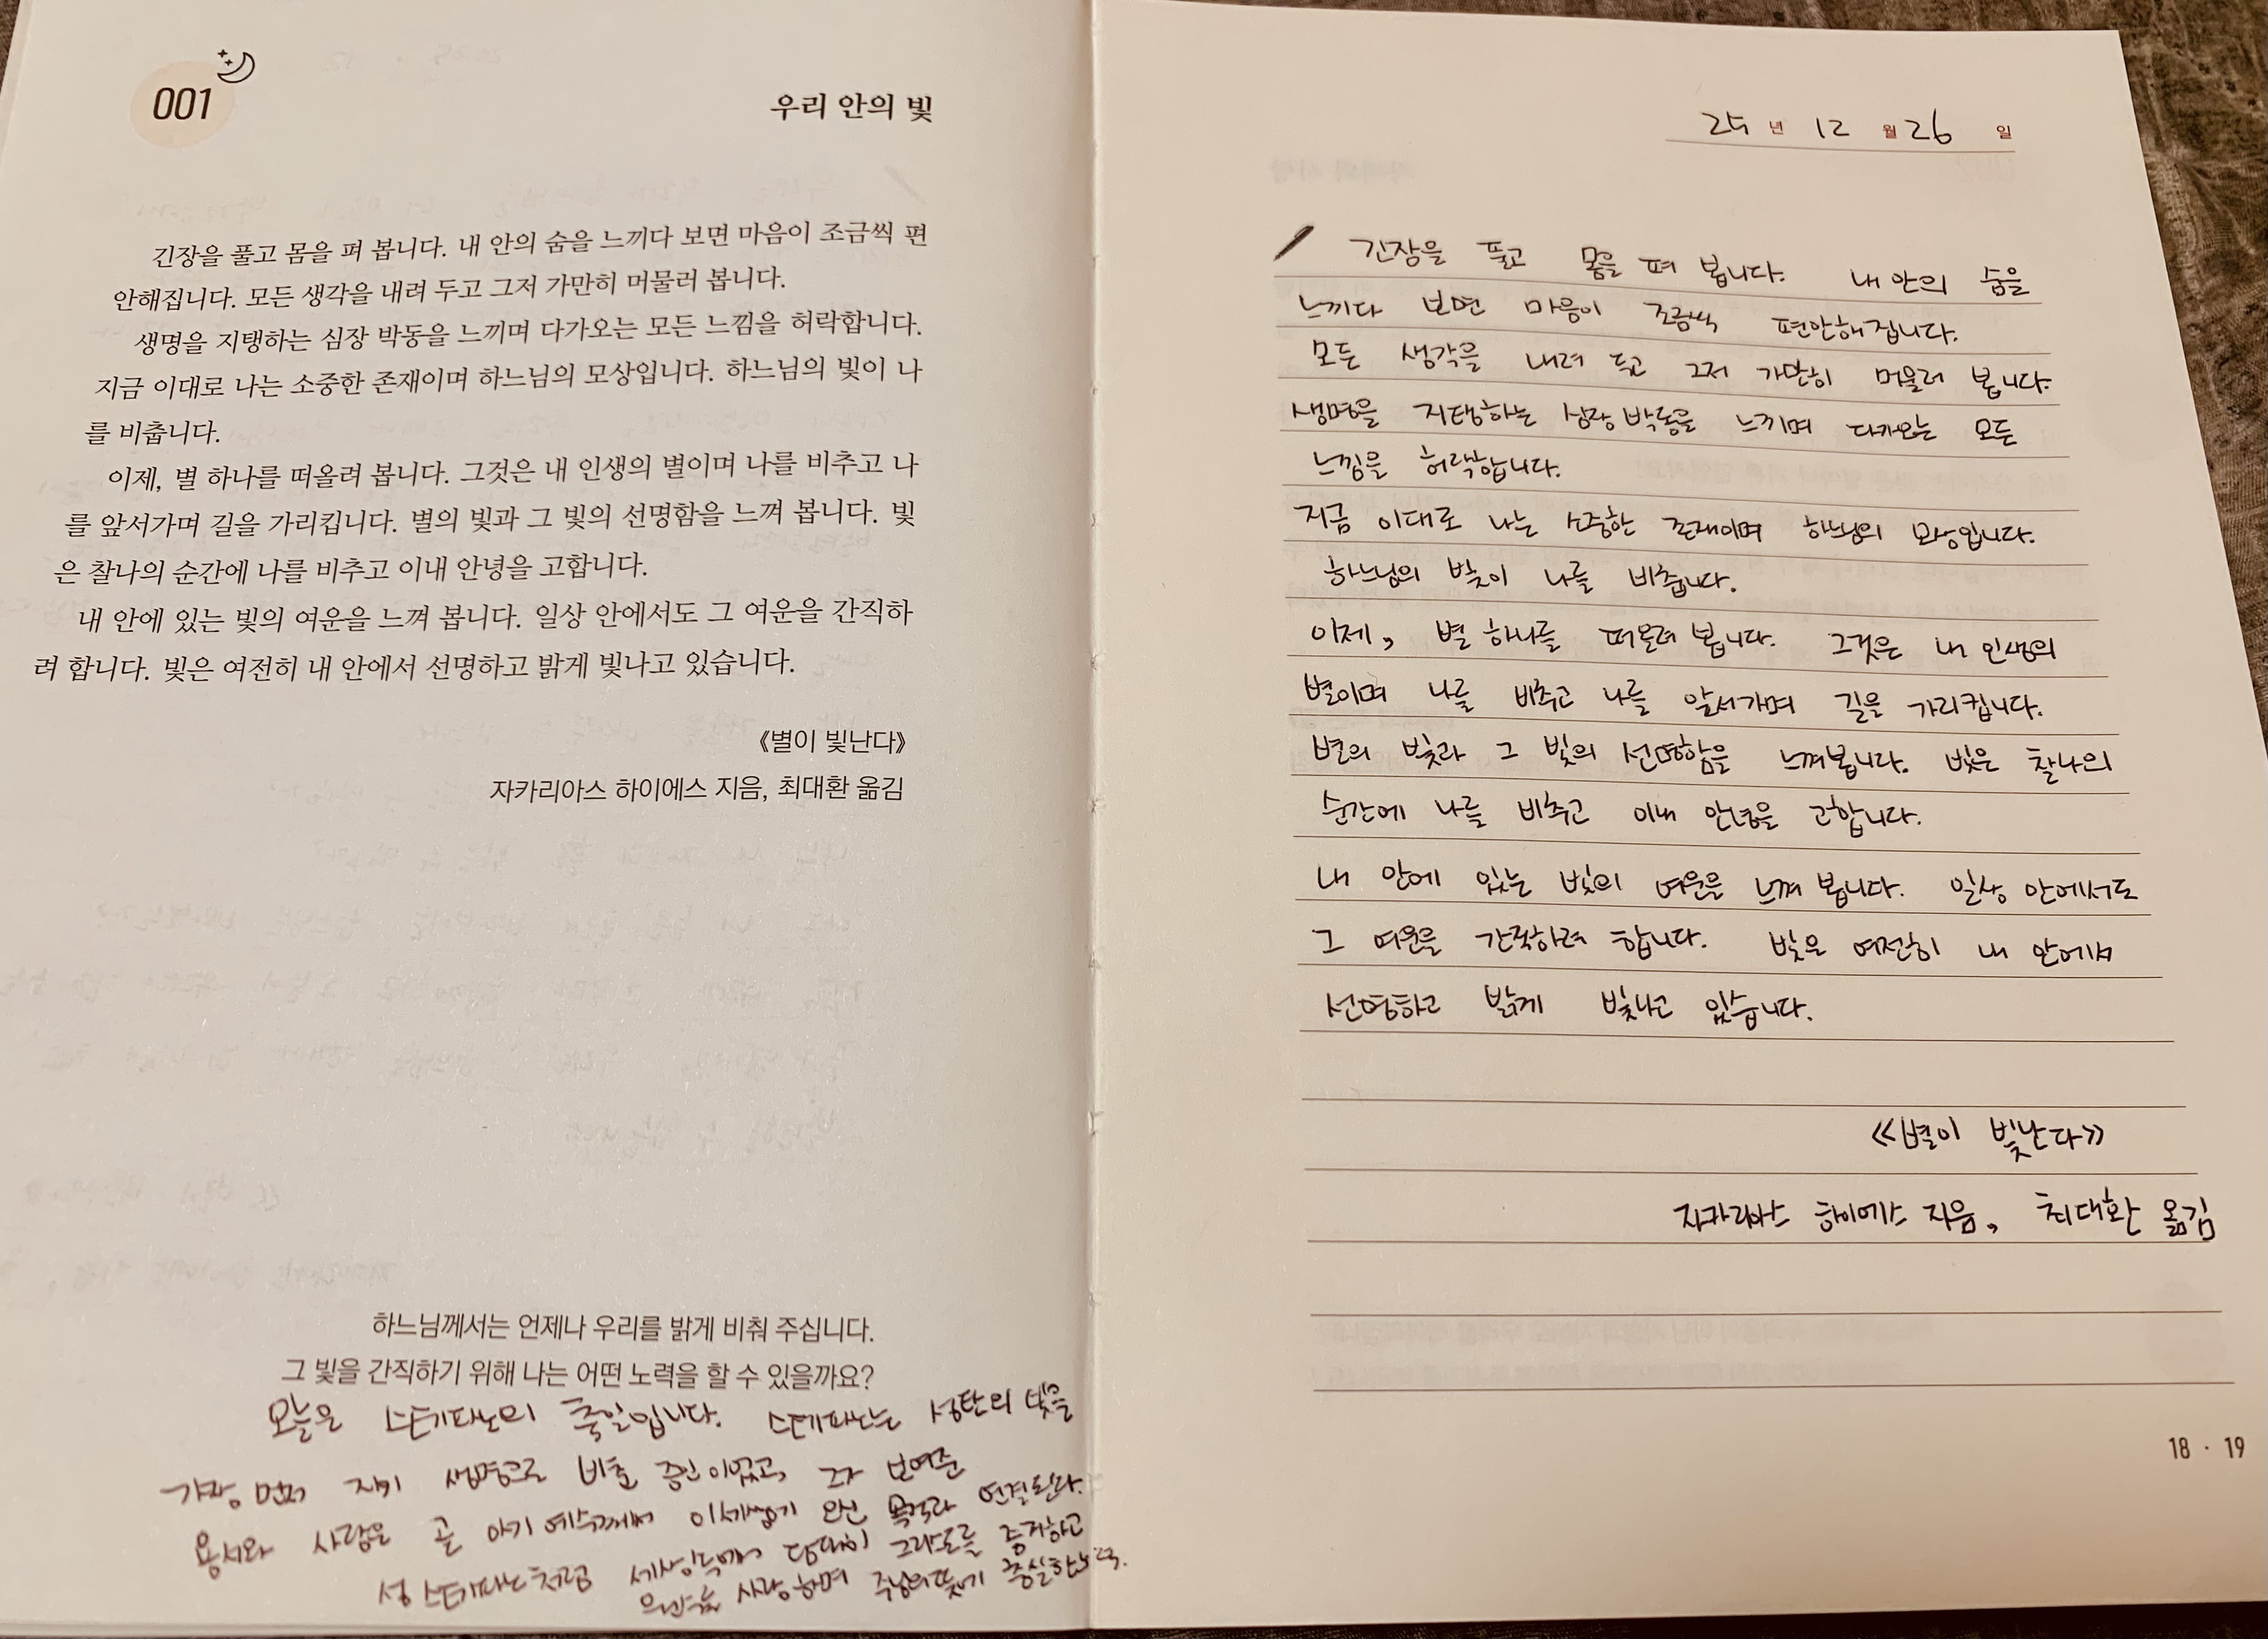 001
우리 안의 빛
긴장을 풀고 몸을 펴 봅니다. 내 안의 숨을 느끼다 보면 마음이 조금씩 편
안해집니다. 모든 생각을 내려 두고 그저 가만히 머물러 봅니다.
생명을 지탱하는 심장 박동을 느끼며 다가오는 모든 느낌을 허락합니다.
지금 이대로 나는 소중한 존재이며 하느님의 모상입니다. 하느님의 빛이 나
를 비춥니다.
이제, 별 하나를 떠올려 봅니다. 그것은 내 인생의 별이며 나를 비추고 나
를 앞서가며 길을 가리킵니다. 별의 빛과 그 빛의 선명함을 느껴 봅니다. 빛
은 찰나의 순간에 나를 비추고 이내 안녕을 고합니다.
내 안에 있는 빛의 여운을 느껴 봅니다. 일상 안에서도 그 여운을 간직하
려 합니다. 빛은 여전히 내 안에서 선명하고 밝게 빛나고 있습니다.
《별이 빛난다》
자카리아스 하이에스 지음, 최대환 옮김
하느님께서는 언제나 우리를 밝게 비춰 주십니다.
그 빛을 간직하기 위해 나는 어떤 노력을 할 수 있을까요?
오늘은 스테파노의 축일입니다. 스테파노는 성탄의 빛을
가장 먼저 자기 생명으로 비춘 증인이었고, 그가 보여준
용서와 사랑은 곧 아기 예수께서 이세상에 오신 목적과 연결된다.
성 스테파노처럼 세상속에서 담대히 그리스도를 증거하고
원수를 사랑하며 주님의 뜻에
25년 12월 26일
긴장을 풀고 몸을 펴 봅니다. 내 안의 숨을
느끼다 보면 마음이 조금씩 편안해집니다.
모든 생각을 내려 두고 그저 가만히 머물러 봅니다.
생명을 지탱하는 심장 박동을 느끼며 다가오는 모든
느낌을 허락합니다.
지금 이대로 나는 소중한 존재이며 하느님의 모상입니다.
하느님의 빛이 나를 비춥니다.
이제, 별 하나를 떠올려 봅니다. 그것은 내 인생의
별이며 나를 비추고 나를 앞서가며 길을 가리킵니다.
별의 빛과 그 빛의 선명함을 느껴봅니다. 빛은 찰나의
순간에 나를 비추고 이내 안녕을 고합니다.
내 안에 있는 빛의 여운을 느껴 봅니다. 일상 안에서도
그 여운을 간직하려 합니다. 빛은 여전히 내 안에서
선명하고 밝게 빛나고 있습니다.
《별이 빛난다》
자카리아스 하이에스 지음, 최대환 옮김
18 · 19